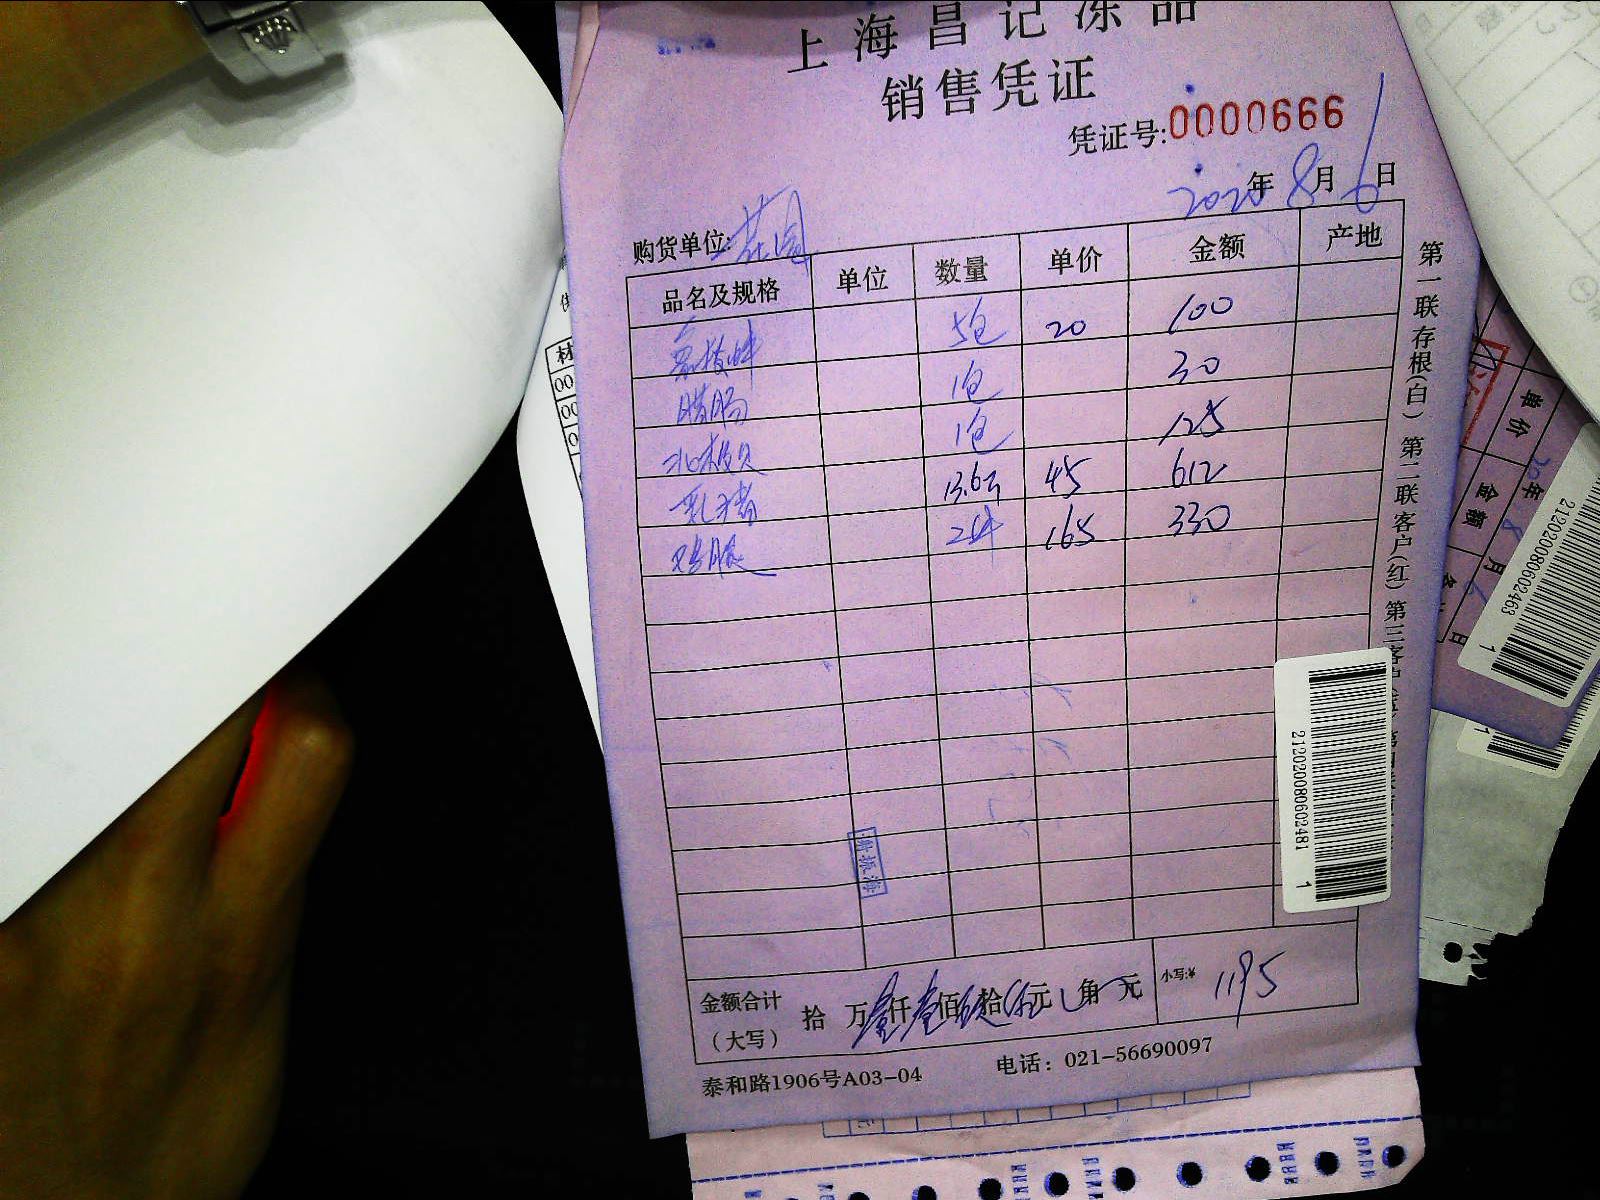 上海昌记冻品
销售凭证
凭证号:0000666
2020年8月6日
购货单位:花园
品名及规格 单位 数量 单价 金额 产地
5包 20 100
腊肠 1包 30
北极贝 1包 125
乳猪 13.6斤 45 612
鸡腿 2件 165 330
金额合计（大写） 拾 万壹仟壹佰玖拾伍元 角 元 小写:¥ 1195
泰和路1906号A03-04 电话：021-56690097
第一联存根(白) 第二联客户(红) 第三客户
212020080602481 1
212020080602463 1
单价
金额